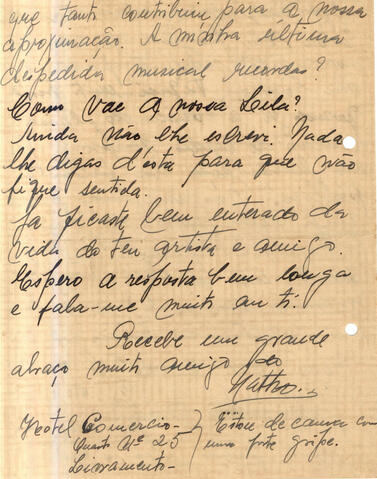 que tanto contribuiu para a nossa
aproximação. A minha última
despedida musical recordas?
Como vae a nossa Leila?
Ainda não lhe escrevi. Nada
lhe digas d'esta para que não
fique sentida.
Ja ficaste bem enterado da
vida do teu artista e amigo.
Espero a resposta bem longa
e fala-me muito em ti.
Recebe um grande
abraço muito amigo do
Hotel Comercio-
Quarto Nº 25
Livramento-
Estou de cama com
uma forte gripe.